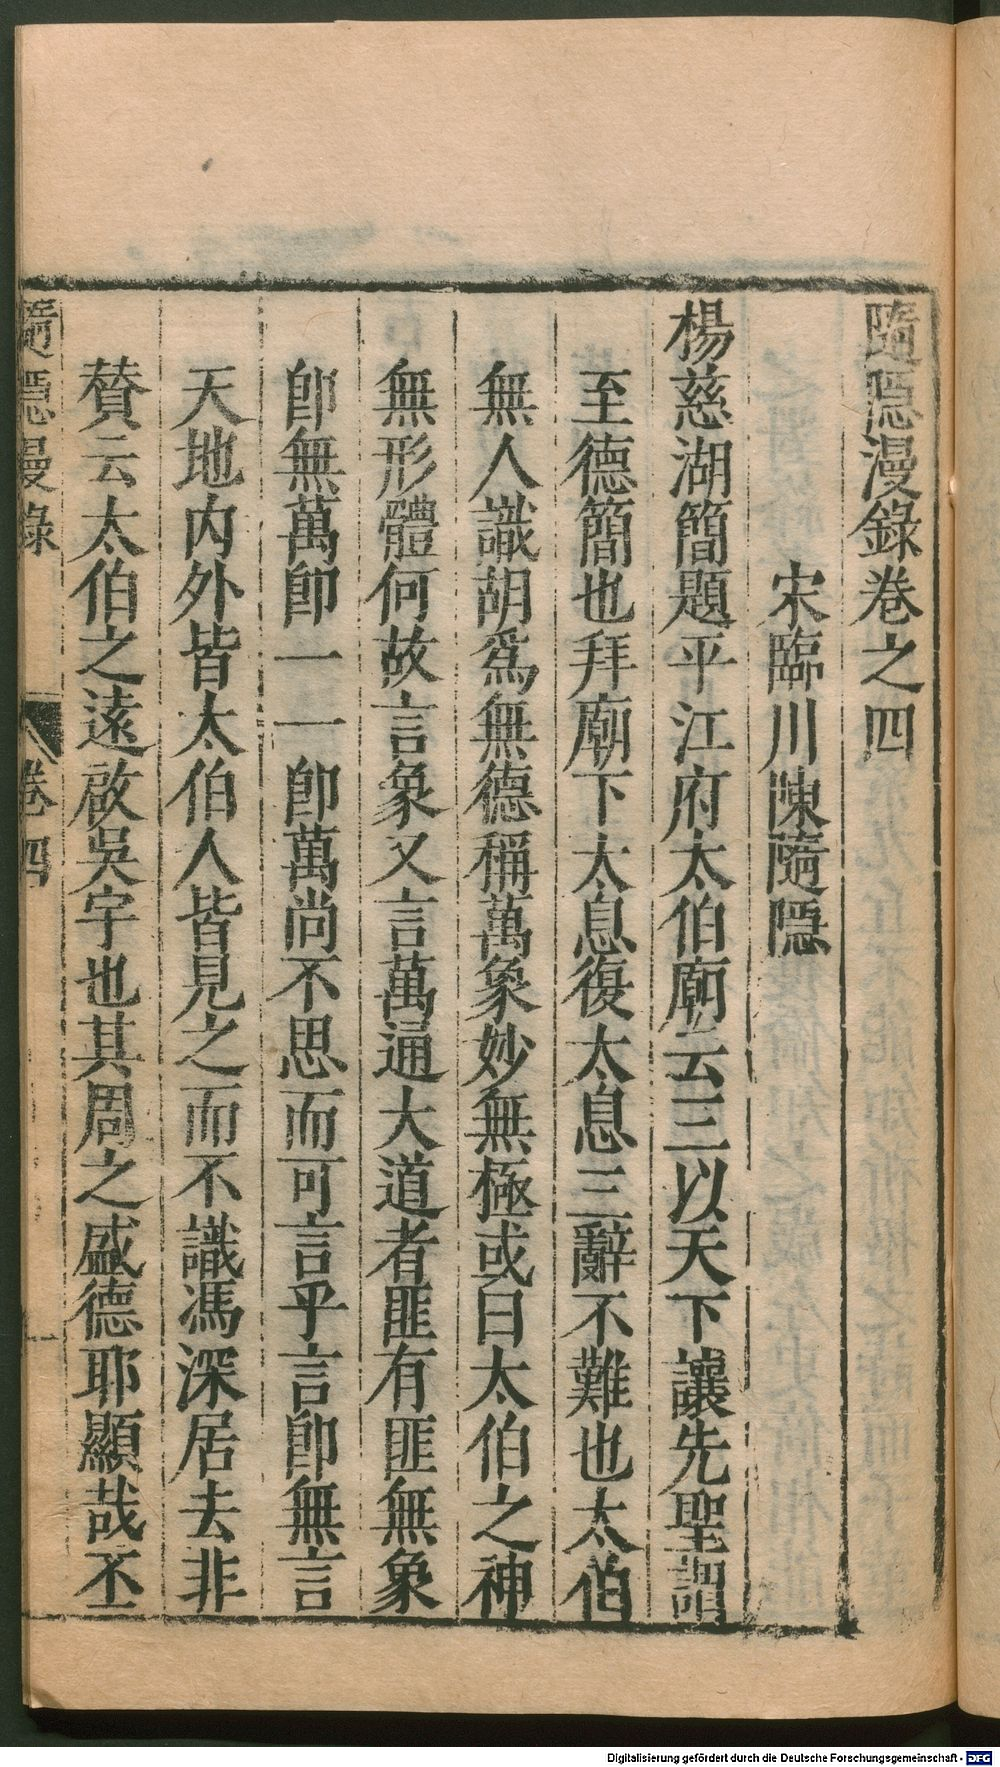 隨隱漫錄卷之四
宋臨川陳隨隱
楊慈湖簡題平江府太伯廟云三以天下讓先聖謂
至德簡也拜廟下太息復太息三辭不難也太伯
無人識胡爲無德稱萬象妙無極或曰太伯之神
無形體何故言象又言萬通大道者匪有匪無象
卽無萬卽一一卽萬尚不思而可言乎言卽無言
天地內外皆太伯人皆見之而不識馮深居去非
賛云太伯之遠啟吳宇也其周之盛德耶顯哉丕
隨隱漫錄
卷四
一
Digitalisierung gefördert durch die Deutsche Forschungsgemeinschaft - DFG